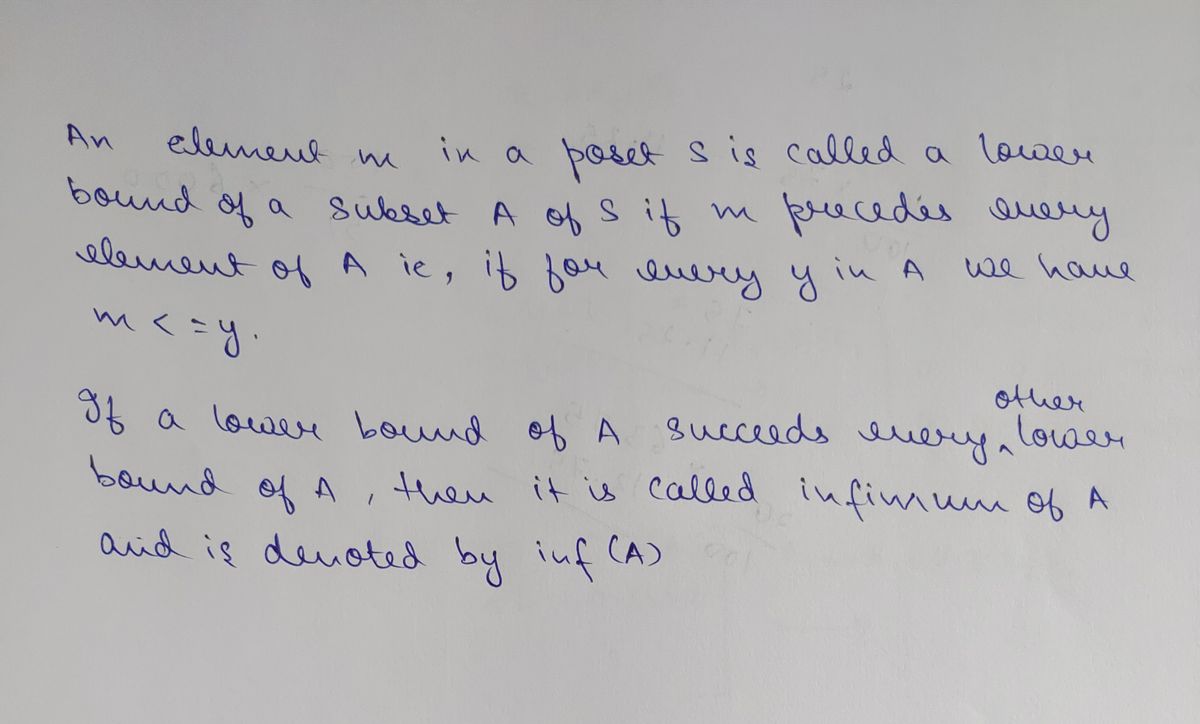 An element m in a poset S is called a lower
bound of a subset A of S if m precedes every
element of A ie, if for every y in A we have
m <= y.
If a lower bound of A succeeds every other lower
bound of A, then it is called infimum of A
and is denoted by inf (A)